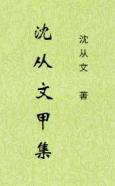 沈从文 著
沈从文甲集